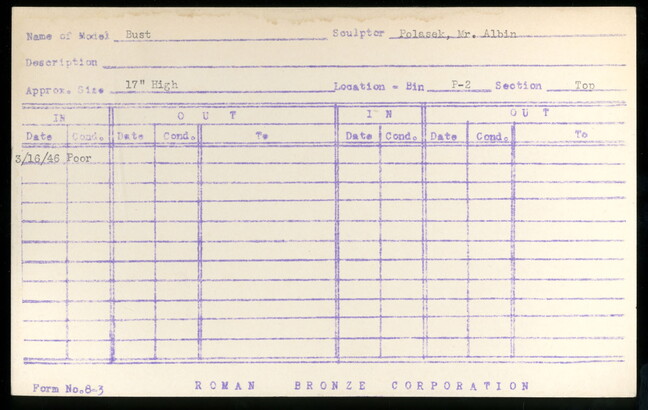 Name of Model Bust Sculptor Polasek, Mr. Albin
Description
Approx. Size 17" High Location - Bin F-2 Section Top
IN OUT IN OUT
Date Cond. Date Cond. To Date Cond. Date Cond. To
3/16/46 Poor
Form No. 8-3 ROMAN BRONZE CORPORATION